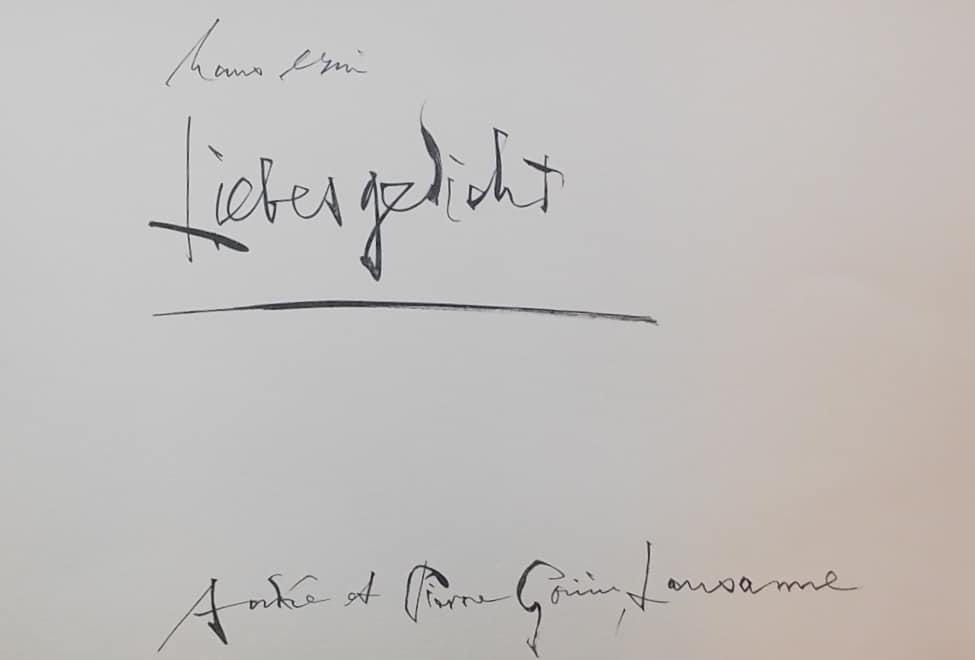 hans erni
Liebesgedicht
Andrée et Pierre Gonin, Lausanne